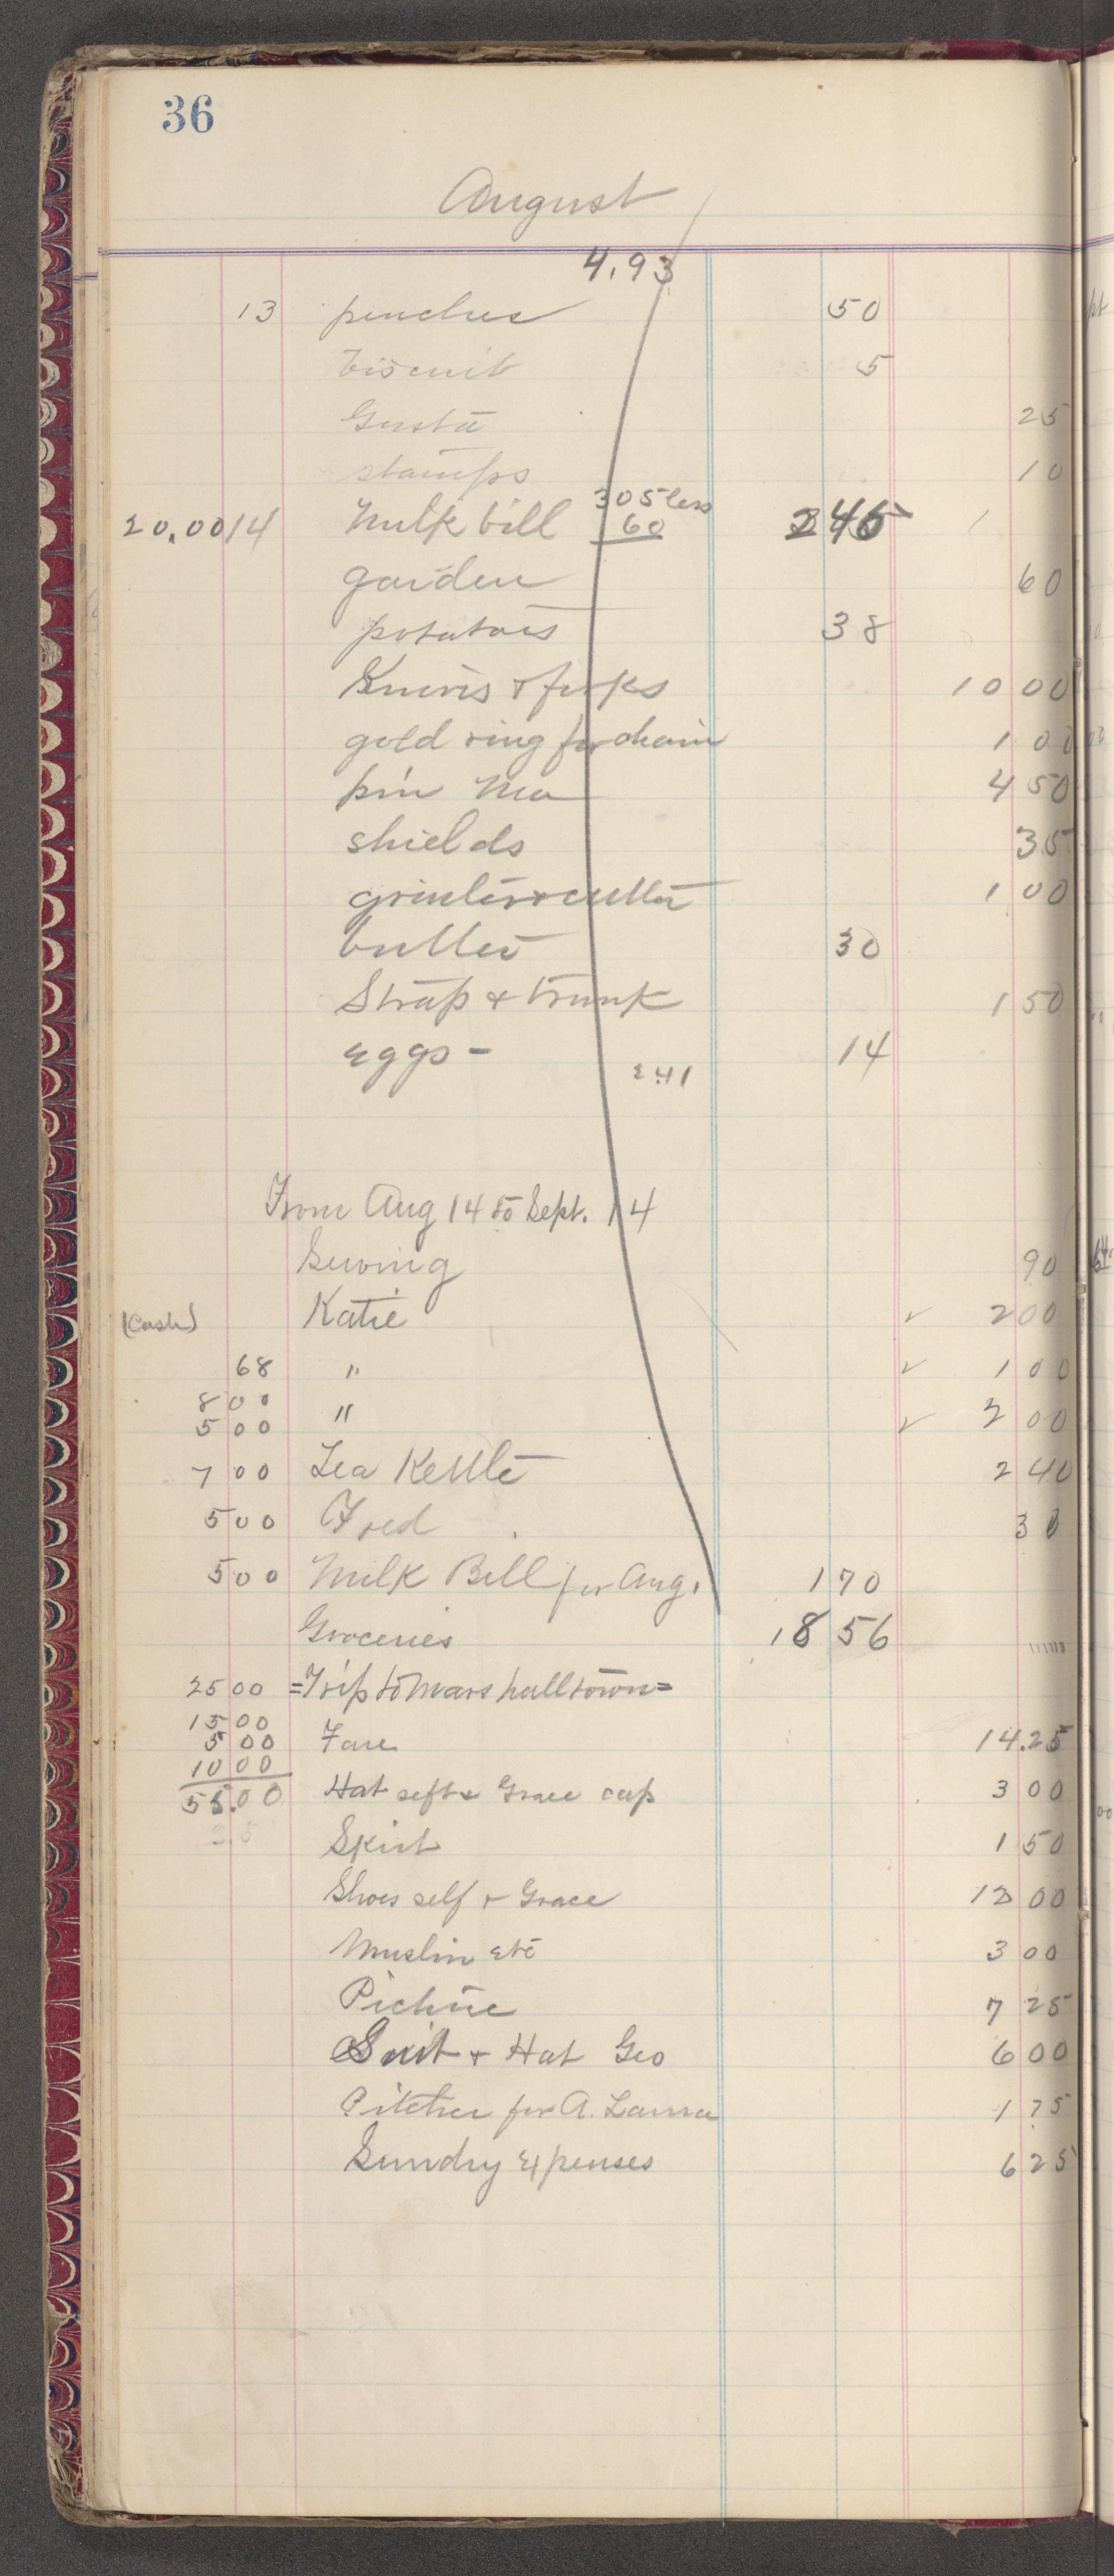 36
August
4.93
13 peaches 50
biscuit 5
Gusta 25
stamps 10
20.00 14 Milk bill 305 less 60 2 45
garden 60
potatoes 38
Knives & forks 10 00
gold ring for chain 1 00
pin Ma 4 50
shields 35
grinder & cutter 1 00
butter 30
Strap & trunk 1 50
eggs - 14
2.41
From Aug 14 to Sept. 14
Sewing 90
(Cash) Katie ✓ 2 00
68 " ✓ 1 00
8 00 " ✓ 2 00
5 00
7 00 Tea Kettle 2 40
5 00 Fred 30
5 00 Milk Bill for Aug. 1 70
Groceries 18 56
25 00 =Trip to Marshalltown=
15 00
5 00 Fare 14.25
10 00
55.00 Hat self & Grace cap 3 00
Skirt 1 50
Shoes self & Grace 12 00
Muslin etc 3 00
Picture 7 25
Suit & Hat Geo 6 00
Pitcher for A. Laura 1 75
Sundry Expenses 6 25